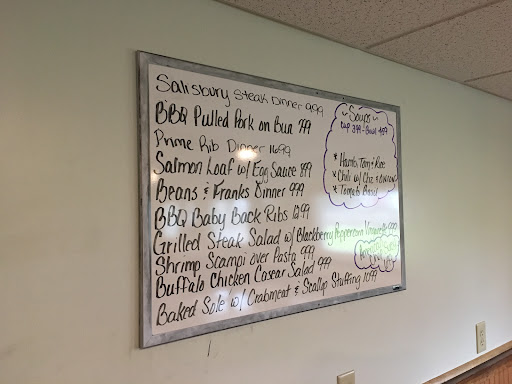 Salisbury Steak Dinner 9.99
BBQ Pulled Pork on Bun 799
Prime Rib Dinner 1699
Salmon Loaf w/ Egg Sauce 899
Beans & Franks Dinner 999
BBQ Baby Back Ribs 1299
Grilled Steak Salad w/ Blackberry Peppercorn
Shrimp Scampi over Pasta 999
Buffalo Chicken Caesar Salad 999
Baked Sole w/ Crabmeat & Scallop Stuffing 1099
~ Soups ~
Cup 399 - Bowl 499
* Hamb, Tom & Rice
* Chili w/ Chz & onion
* Tomato Basil